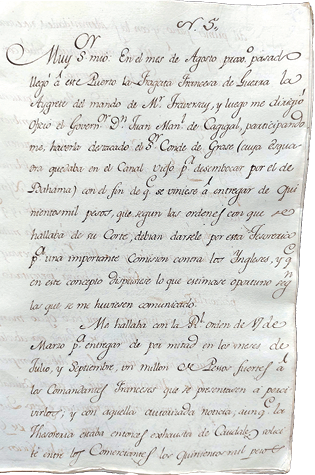 N. 5.
Muy S.or mio. En el mes de Agosto prox.o pasado
llegó á este Puerto la Fragata Francesa de Guerra la
Aygrete del mando de M.r Traversay, y luego me dirigió
Oficio el Govern.or D.n Juan Man.l de Cagigal, participando
me, haverla destacado el S.or Conde de Grase (cuya Esqua
dra quedaba en el Canal viejo p.a desembocar por el de
Bahama) con el fin de q.e se viniese á entregar de Qui
nientos mil pesos, que segun las ordenes con que se
hallaba de su Corte, debian darsele por esta Thesoreria
p.a una importante Comision contra los Yngleses, y q.e
en este concepto dispusiese lo que estimase oportuno seg.n
las que se me huviesen comunicado.
Me hallaba con la R.l orden de 17 de
Marzo p.a entregar de por mitad en los meses de
Julio, y Septiembre, un millon de Pesos fuertes á
los Comandantes Franceses que se presentasen á perci
virlos; y con aquella autorizada noticia, aunq.e la
Thesoreria estaba entonces exhausta de Caudales,
té entre los Comerciantes los Quinientos mil pesos